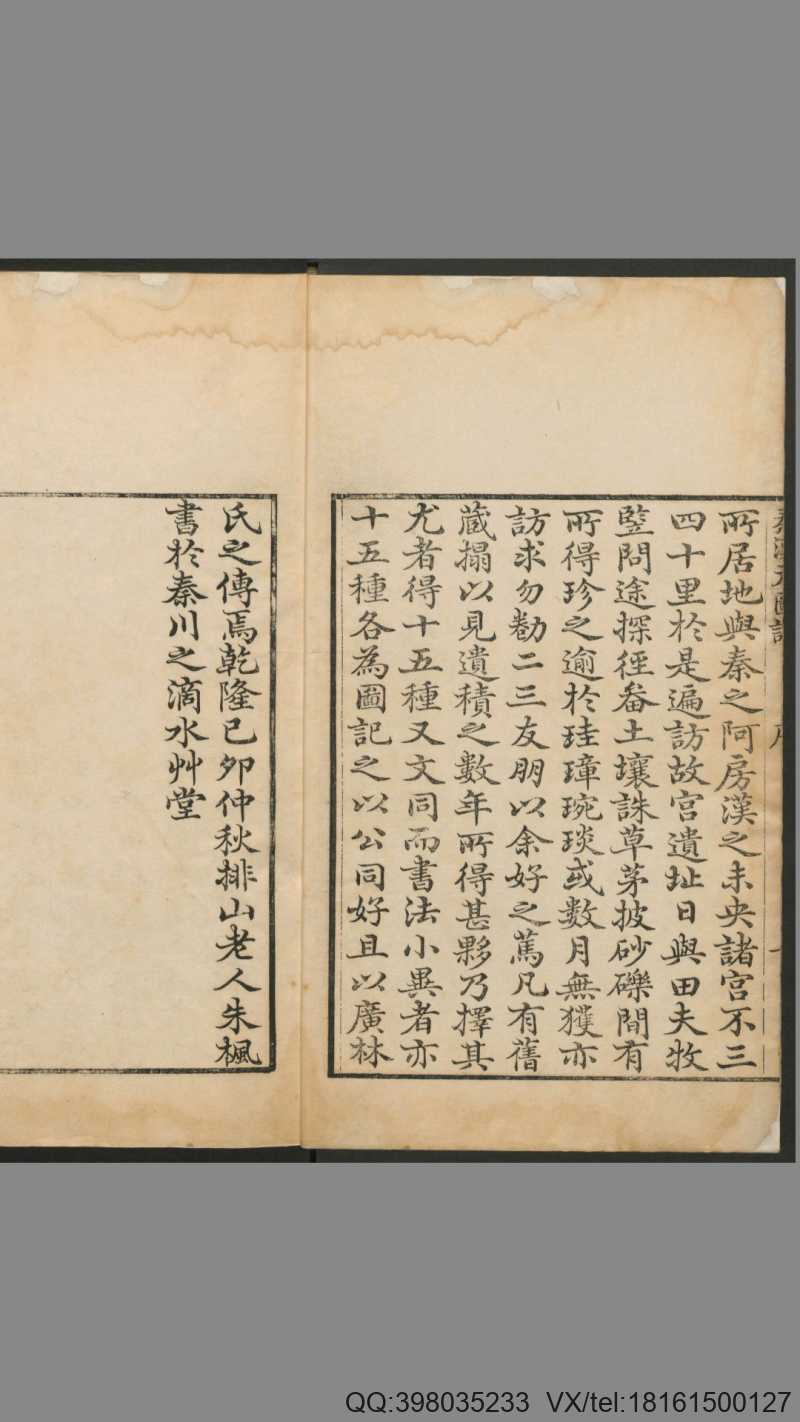 秦漢瓦圖記
序
一
所居地與秦之阿房漢之未央諸宫不三
四十里於是遍訪故宫遺址日與田夫牧
竪問途探徑畚土壤誅草茅披砂礫間有
所得珍之逾於珪璋琬琰或数月無獲亦
訪求勿勌二三友朋以余好之篤凡有舊
蔵搨以見遺積之數年所得甚夥乃擇其
尤者得十五種又文同而書法小異者亦
十五種各為圖記之以公同好且以廣林
氏之傳焉乾隆己卯仲秋排山老人朱楓
書於秦川之滴水艸堂
QQ:398035233 VX/tel:18161500127